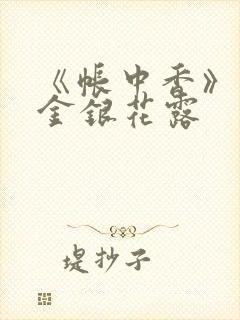 《帐中香》
金银花露
堤抄子